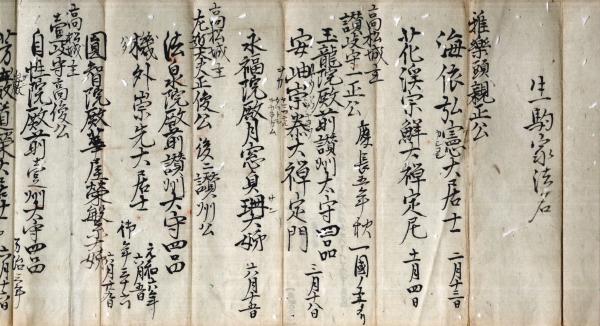 生駒家法名
雅樂頭親正公
海依弘憲大居士 二月十三日
花渓宗鮮大禅定尼 十一月四日
高松城主
讃岐守一正公 慶長五年秋 一國ノ主
玉龍院殿前讃州太守四品
安岫崇恭大禅定門 三月十八日
永福院殿月窓貞珊大姉 六月十五日
高松城主
左近大夫正俊公 後ニ讃州公
法泉院殿前讃州太守四品
機外崇先大居士 元和七年 六月五日 御年三十六
圓智院殿 大姉
高松城主
壱岐守高俊公
自性院殿前壱州太守四品
大居士 六月十六日 万治二年